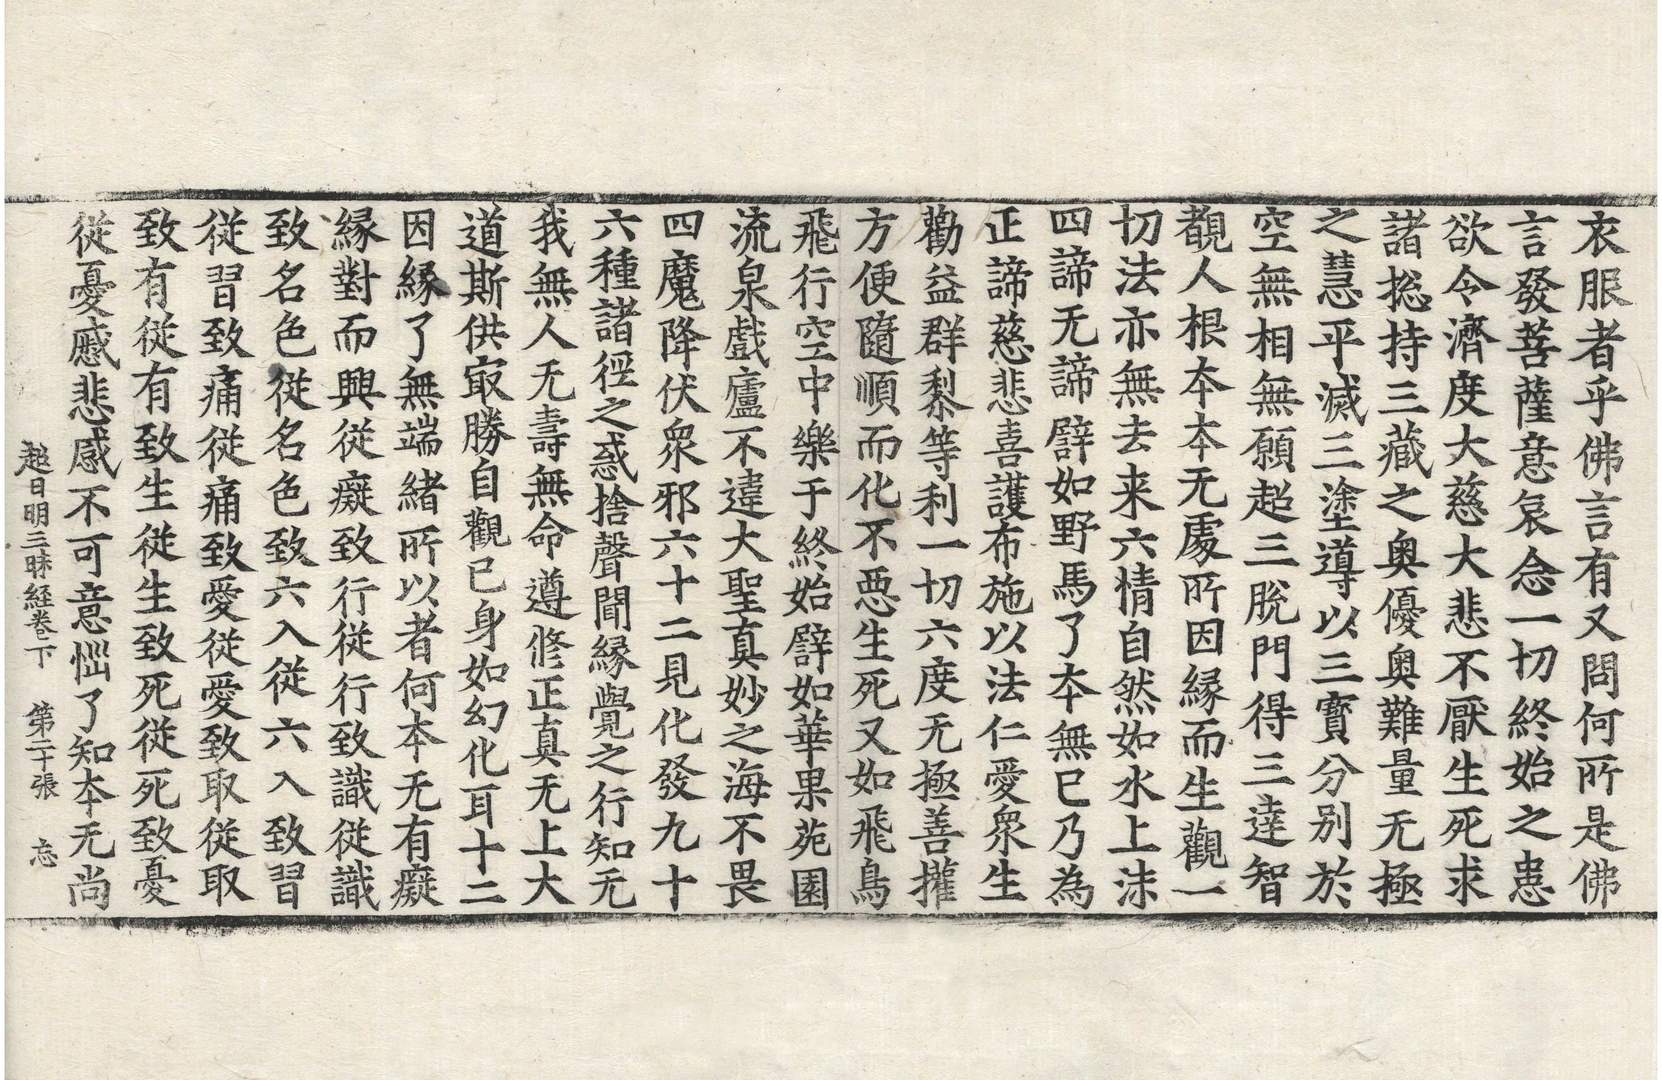 衣服者乎佛言有又問何所是佛
言發菩薩意哀念一切終始之患
欲令濟度大慈大悲不厭生死求
諸揔持三藏之奧優奧難量无極
之慧平滅三塗導以三寶分別於
空無相無願超三脫門得三達智
覩人根本本无處所因緣而生觀一
切法亦無去来六情自然如水上沫
四諦无諦譬如野馬了本無已乃為
正諦慈悲喜護布施以法仁愛衆生
勸益群黎等利一切六度无極善攉
方便隨順而化不惡生死又如飛鳥
飛行空中樂于終始譬如華果苑園
流泉戲廬不違大聖真妙之海不畏
四魔降伏衆邪六十二見化發九十
六種諸徑之惑捨聲聞緣覺之行知无
我無人无壽無命遵修正真无上大
道斯供㝡勝自觀已身如幻化耳十二
因緣了無端緒所以者何本无有癡
緣對而興從癡致行從行致識從識
致名色從名色致六入從六入致習
從習致痛從痛致愛從愛致取從取
致有從有致生從生致死從死致憂
從憂慼悲感不可意惱了知本无尚
超日明三昧經卷下　第二十張　忘